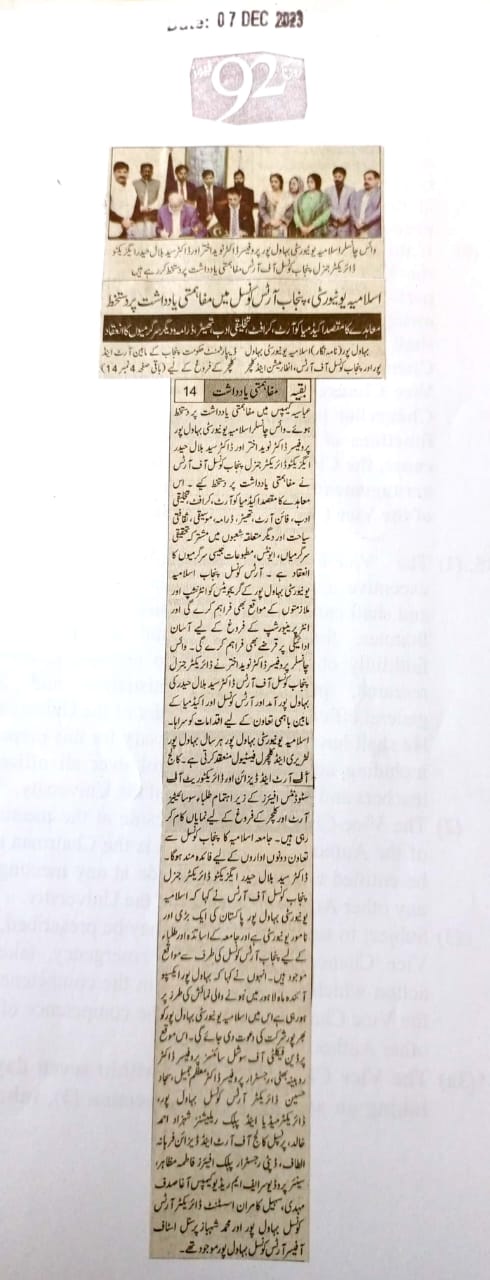 Date: 07 DEC 2023
92
وائس چانسلر اسلامیہ یونیورسٹی بہاول پور پروفیسر ڈاکٹر نوید اختر اور ڈاکٹر سید بلال حیدر ایگزیکٹو
ڈائریکٹر جنرل پنجاب کونسل آف آرٹس مفاہمتی یادداشت پر دستخط کر رہے ہیں
اسلامیہ یونیورسٹی، پنجاب آرٹس کونسل میں مفاہمتی یادداشت پر دستخط
معاہدے کا مقصد اکیڈمیا کو آرٹ، کرافٹ تخلیقی ادب، تھیٹر، ڈرامہ و دیگر سرگرمیوں کا انعقاد
بہاول پور (نامہ نگار) اسلامیہ یونیورسٹی بہاول
پور اور پنجاب کونسل آف آرٹس، انفارمیشن اینڈ کلچر
ڈیپارٹمنٹ حکومت پنجاب کے مابین آرٹ اینڈ
کلچر کے فروغ کے لیے (باقی صفحہ 4 نمبر 14)
بقیہ مفاہمتی یادداشت 14
عباسیہ کیمپس میں مفاہمتی یادداشت پر دستخط
ہوئے۔ وائس چانسلر اسلامیہ یونیورسٹی بہاول پور
پروفیسر ڈاکٹر نوید اختر اور ڈاکٹر سید بلال حیدر
ایگزیکٹو ڈائریکٹر جنرل پنجاب کونسل آف آرٹس
نے مفاہمتی یادداشت پر دستخط کیے۔ اس
معاہدے کا مقصد اکیڈمیا کو آرٹ، کرافٹ، تخلیقی
ادب، فائن آرٹ، تھیٹر، ڈرامہ، موسیقی، ثقافتی
سیاحت اور دیگر متعلقہ شعبوں میں مشترکہ تحقیقی
سرگرمیاں، ایونٹس، مطبوعات جیسی سرگرمیوں کا
انعقاد ہے۔ آرٹس کونسل پنجاب اسلامیہ
یونیورسٹی بہاول پور کے گریجویٹس کو انٹرنشپ اور
ملازمتوں کے مواقع بھی فراہم کرے گی اور
انٹرپرینیورشپ کے فروغ کے لیے آسان
ادائیگی پر قرضے بھی فراہم کرے گی۔ وائس
چانسلر پروفیسر ڈاکٹر نوید اختر نے ڈائریکٹر جنرل
پنجاب کونسل آف آرٹس ڈاکٹر سید بلال حیدر کی
بہاول پور آمد اور آرٹس کونسل اور اکیڈمیا کے
مابین باہمی تعاون کے لیے اقدامات کو سراہا۔
اسلامیہ یونیورسٹی بہاول پور ہر سال بہاول پور
لٹریری اینڈ کلچرل فیسٹیول منعقد کرتی ہے۔ کالج
آف آرٹ اینڈ ڈیزائن اور ڈائریکٹوریٹ آف
سٹوڈنٹس افیئرز کے زیر اہتمام طلباء سوسائٹیز
آرٹ اور کلچر کے فروغ کے لیے نمایاں کام کر
رہی ہیں۔ جامعہ اسلامیہ کا پنجاب کونسل سے
تعاون دونوں اداروں کے لیے فائدہ مند ہوگا۔
ڈاکٹر سید بلال حیدر ایگزیکٹو ڈائریکٹر جنرل
پنجاب کونسل آف آرٹس نے کہا کہ اسلامیہ
یونیورسٹی بہاول پور پاکستان کی ایک بڑی اور
نامور یونیورسٹی ہے اور جامعہ کے اساتذہ اور طلباء
کے لیے پنجاب آرٹس کونسل کی طرف سے مواقع
موجود ہیں۔ انہوں نے کہا کہ بہاول پور ایکسپو
آئندہ ماہ لاہور میں ہونے والی نمائش کی طرز پر
ہو رہی ہے اس میں اسلامیہ یونیورسٹی بہاول پور کو
بھرپور شرکت کی دعوت دی جائے گی۔ اس موقع
پر ڈین فیکلٹی آف سوشل سائنسز پروفیسر ڈاکٹر
روبینہ بھٹی، رجسٹرار پروفیسر ڈاکٹر معظم جمیل، سجاد
حسین ڈائریکٹر آرٹس کونسل بہاول پور،
ڈائریکٹر میڈیا اینڈ پبلک ریلیشنز شہزاد احمد
خالد، پرنسپل کالج آف آرٹ اینڈ ڈیزائن فرحانہ
الطاف، ڈپٹی رجسٹرار پبلک افیئرز فاطمہ مظاہر،
سینئر پروڈیوسر ایف ایم ریڈیو کیمپس آغا صدف
مہدی، سہیل کامران اسسٹنٹ ڈائریکٹر آرٹس
کونسل بہاول پور اور محمد شہباز پرسنل اسٹاف
آفیسر آرٹس کونسل بہاول پور موجود تھے۔